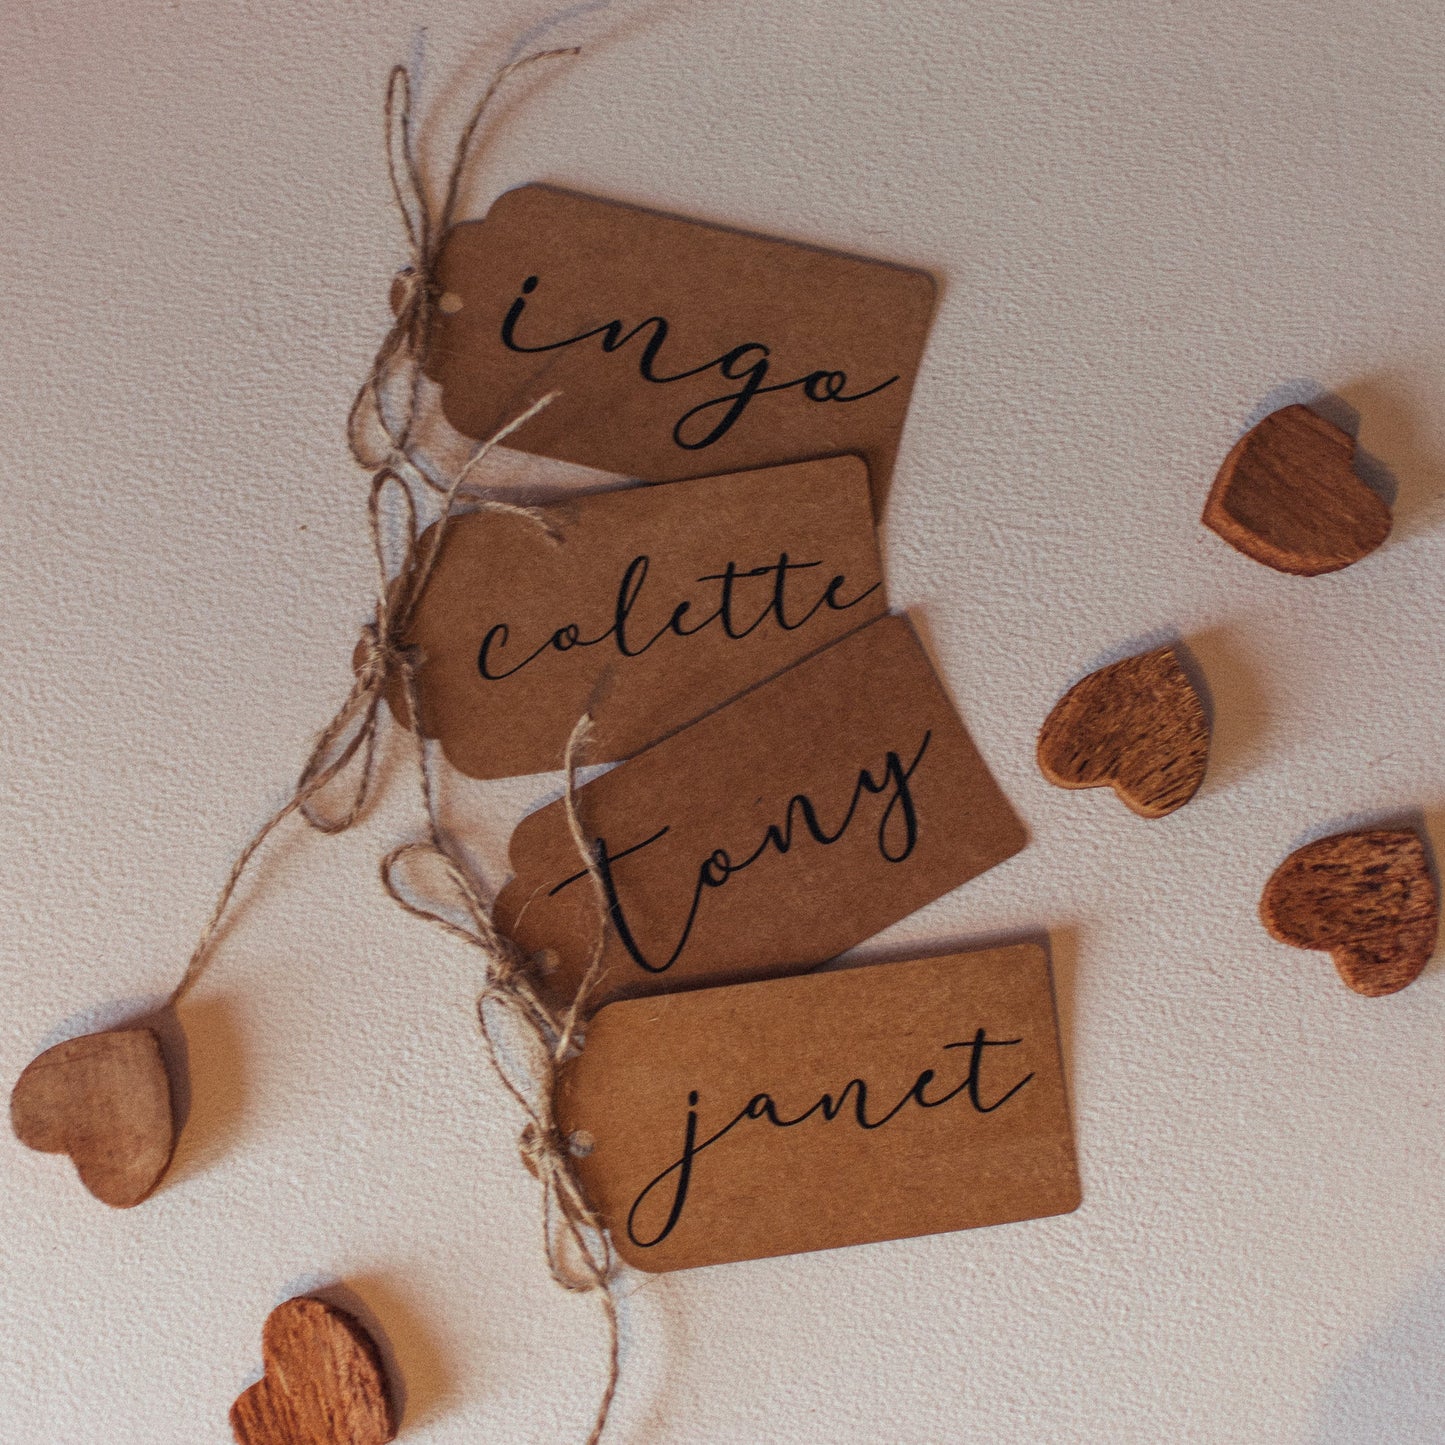 ingo
colette
tony
janet